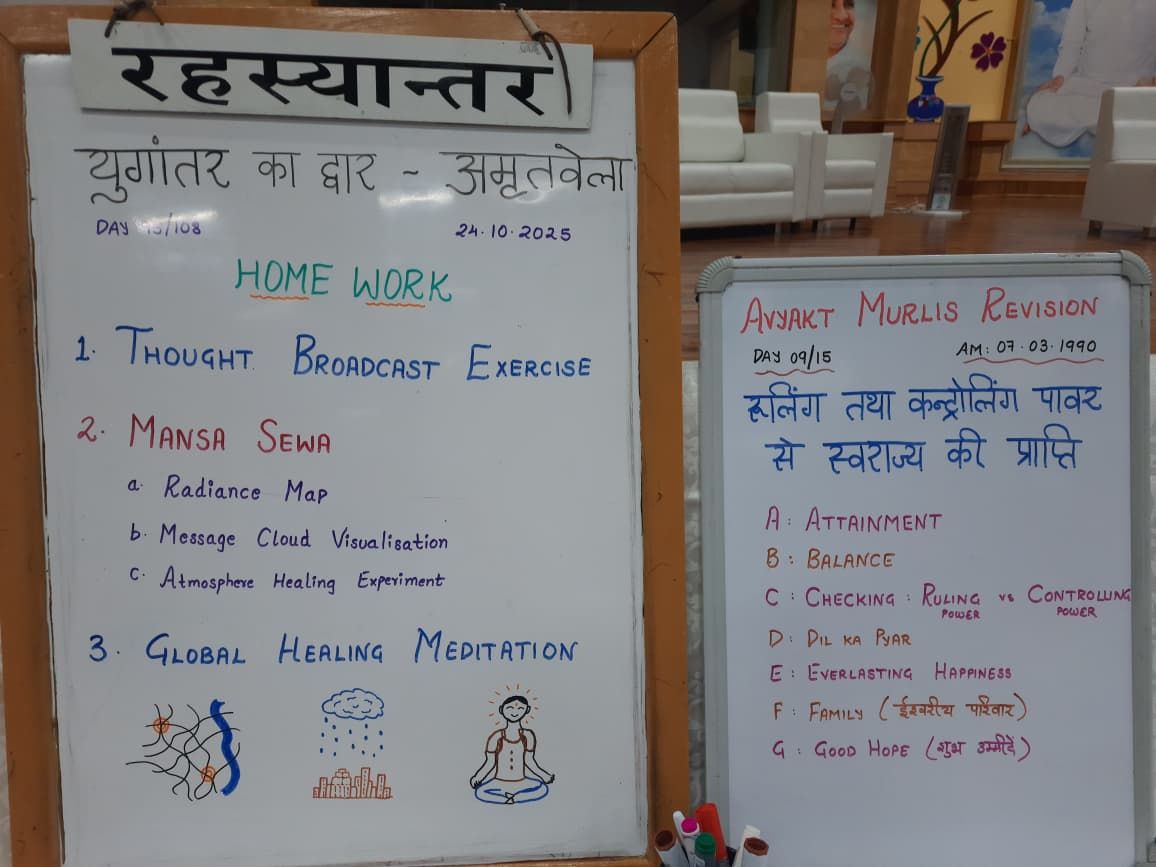 रहस्यान्तर
युगांतर का द्वार - अमृतवेला
DAY /108
24.10.2025
HOME WORK
1. THOUGHT BROADCAST EXERCISE
2. MANSA SEWA
a. Radiance Map
b. Message Cloud Visualisation
c. Atmosphere Healing Experiment
3. GLOBAL HEALING MEDITATION
AVYAKT MURLIS REVISION
DAY 09/15
AM: 07.03.1990
रूलिंग तथा कन्ट्रोलिंग पावर
से स्वराज्य की प्राप्ति
A: ATTAINMENT
B: BALANCE
C: CHECKING: RULING vs CONTROLLING
POWER POWER
D: DIL KA PYAR
E: EVERLASTING HAPPINESS
F: FAMILY (ईश्वरीय परिवार)
G: GOOD HOPE (शुभ उम्मीदें)